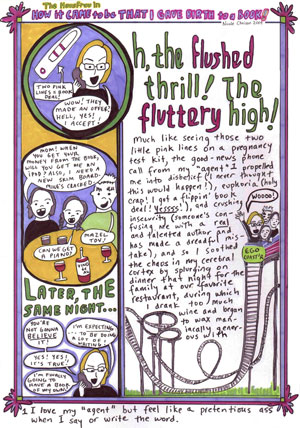 The HausFrau in
HOW IT CAME to be THAT I GAVE BIRTH to a BOOK!
Nicole Chaison 2008
TWO PINK
LINES = BOOK
DEAL!
WOW! THEY
MADE AN OFFER?
HELL, YES!
I ACCEPT!
MOM! WHEN
YOU GET YOUR
MONEY FROM THE BOOK,
WILL YOU GET ME AN
IPOD? ALSO, I NEED A
NEW SKIM BOARD.
MINE'S CRACKED.
CAN WE GET
A PIANO?
MAZEL
TOV!
LATER, THE
SAME NIGHT...
YOU'RE
NOT GONNA
BELIEVE
IT!
I'M EXPECTING
... TO BE DOING
A LOT OF
WRITING...
YES! YES!
IT'S TRUE!
I'M FINALLY
GOING TO
HAVE A BOOK
OF MY OWN!
Oh, the flushed
thrill! The
fluttery high!
Much like seeing those two
little pink lines on a pregnancy
test kit, the good-news phone
call from my "agent"1 propelled
me into disbelief (I never thought
this would happen!), euphoria (holy
crap! I got a flippin' book
deal! Yessss!), and crushing
insecurity (someone's con-
fusing me with a real
and talented author and
has made a dreadful mis-
take), and so I soothed
the chaos in my cerebral
cortex by splurging on
dinner that night for the
family at our favorite
restaurant, during which
I drank too much
wine and began
to wax man-
iacally gener-
ous with
WOOOO!
EGO
COASTER
1 I love my "agent" but feel like a pretentious ass
when I say or write the word.